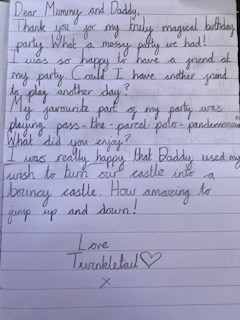 Dear Mummy and Daddy,
Thank you for my truly magical birthday
party. What a messy potty we had!
I was so happy to have a friend at
my party. Could I have another friend
to play another day?
My favourite part of my party was
playing pass-the-parcel-polo-pandemonium.
What did you enjoy?
I was really happy that Daddy used my
wish to turn our castle into a
bouncy castle. How amazing to
jump up and down!
Love
Twinkletail♡
x